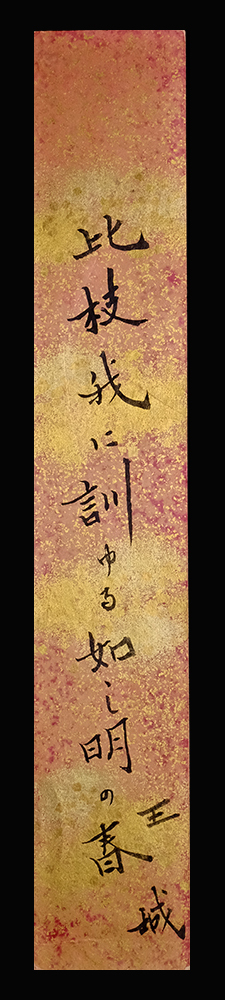 比枝我に訓ゆる如し明の春
王城